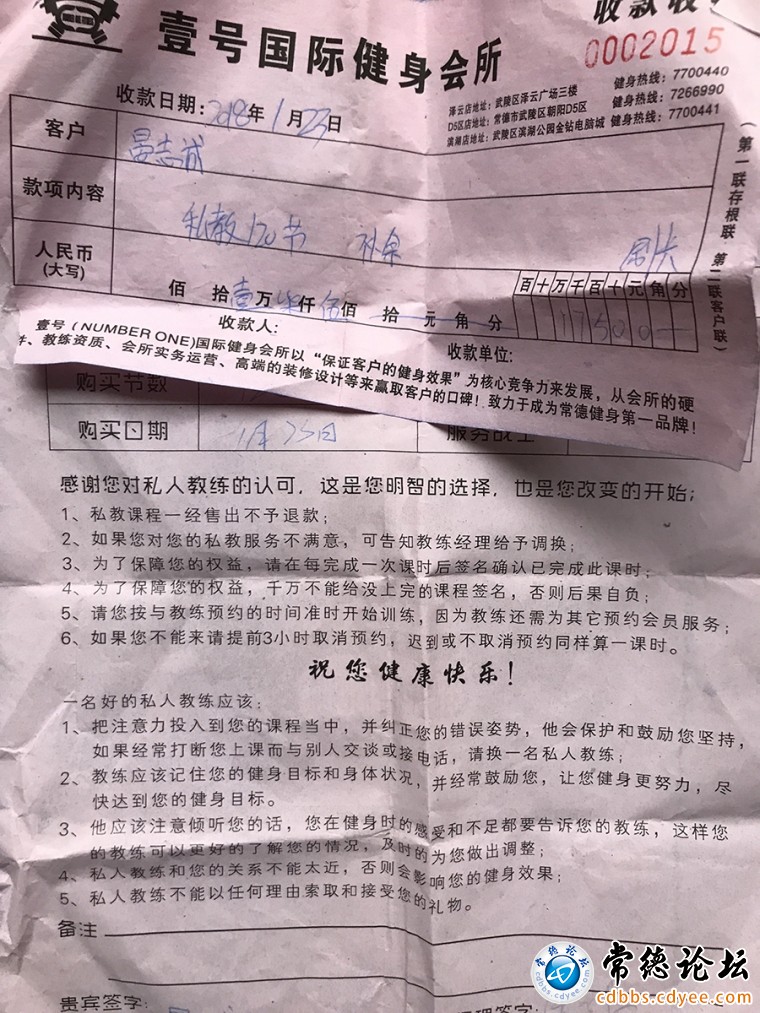 收款收
壹号国际健身会所
0002015
泽云店地址:武陵区泽云广场三楼 健身热线:7700440
D5区店地址:常德市武陵区朝阳D5区 健身热线:7266990
滨湖店地址:武陵区滨湖公园金钻电脑城 健身热线:7700441
收款日期:2018年1月23日
客户 晏志诚
款项内容 私教120节 补余 刷卡
人民币
(大写)
佰 拾壹万柒仟伍佰 拾 元 角 分
百十万千百十元角分
17500
(第一联存根联 第二联客户联)
收款人: 收款单位:
壹号(NUMBER ONE)国际健身会所以“保证客户的健身效果”为核心竞争力来发展,从会所的硬
件、教练资质、会所实务运营、高端的装修设计等来赢取客户的口碑!致力于成为常德健身第一品牌!
购买节数
购买日期 1月23日
感谢您对私人教练的认可,这是您明智的选择,也是您改变的开始;
1、私教课程一经售出不予退款;
2、如果您对您的私教服务不满意,可告知教练经理给予调换;
3、为了保障您的权益,请在每完成一次课时后签名确认已完成此课时;
4、为了保障您的权益,千万不能给没上完的课程签名,否则后果自负;
5、请您按与教练预约的时间准时开始训练,因为教练还需为其它预约会员服务;
6、如果您不能来请提前3小时取消预约,迟到或不取消预约同样算一课时。
祝您健康快乐!
一名好的私人教练应该:
1、把注意力投入到您的课程当中,并纠正您的错误姿势,他会保护和鼓励您坚持,
如果经常打断您上课而与别人交谈或接电话,请换一名私人教练;
2、教练应该记住您的健身目标和身体状况,并经常鼓励您,让您健身更努力,尽
快达到您的健身目标。
3、他应该注意倾听您的话,您在健身时的感受和不足都要告诉您的教练,这样您
的教练可以更好的了解您的情况,及时的为您做出调整;
4、私人教练和您的关系不能太近,否则会影响您的健身效果;
5、私人教练不能以任何理由索取和接受您的礼物。
备注
贵宾签字:
理签字:
常德论坛
cdbbs.cdyee.com